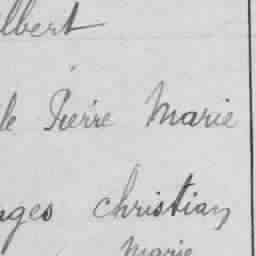 lbert
le Pierre Marie
ges christian
Marie